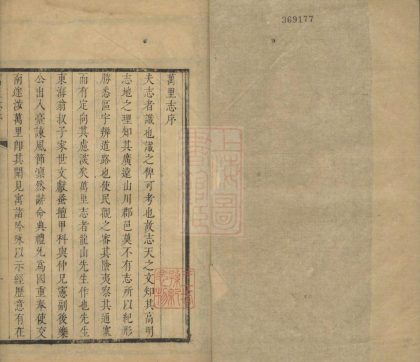 萬里志序
夫志者識也識之俾可考也故志天之文知其高明
志地之理知其廣遠山川郡邑莫不有志所以紀形
勝悉區宇辨道路也使民觀之審其險夷察其通塞
而有定向其慮淡矣萬里志者龍山先生作也先生
東海翁叔子家世文獻蚤擢甲科與仲兄憲副後樂
公出入臺諫風節凜然辭命典禮允為國重奉使交
南逐漭萬里即其聞見寓諸吟咏以示經歷意有在
369177
上海圖書館藏